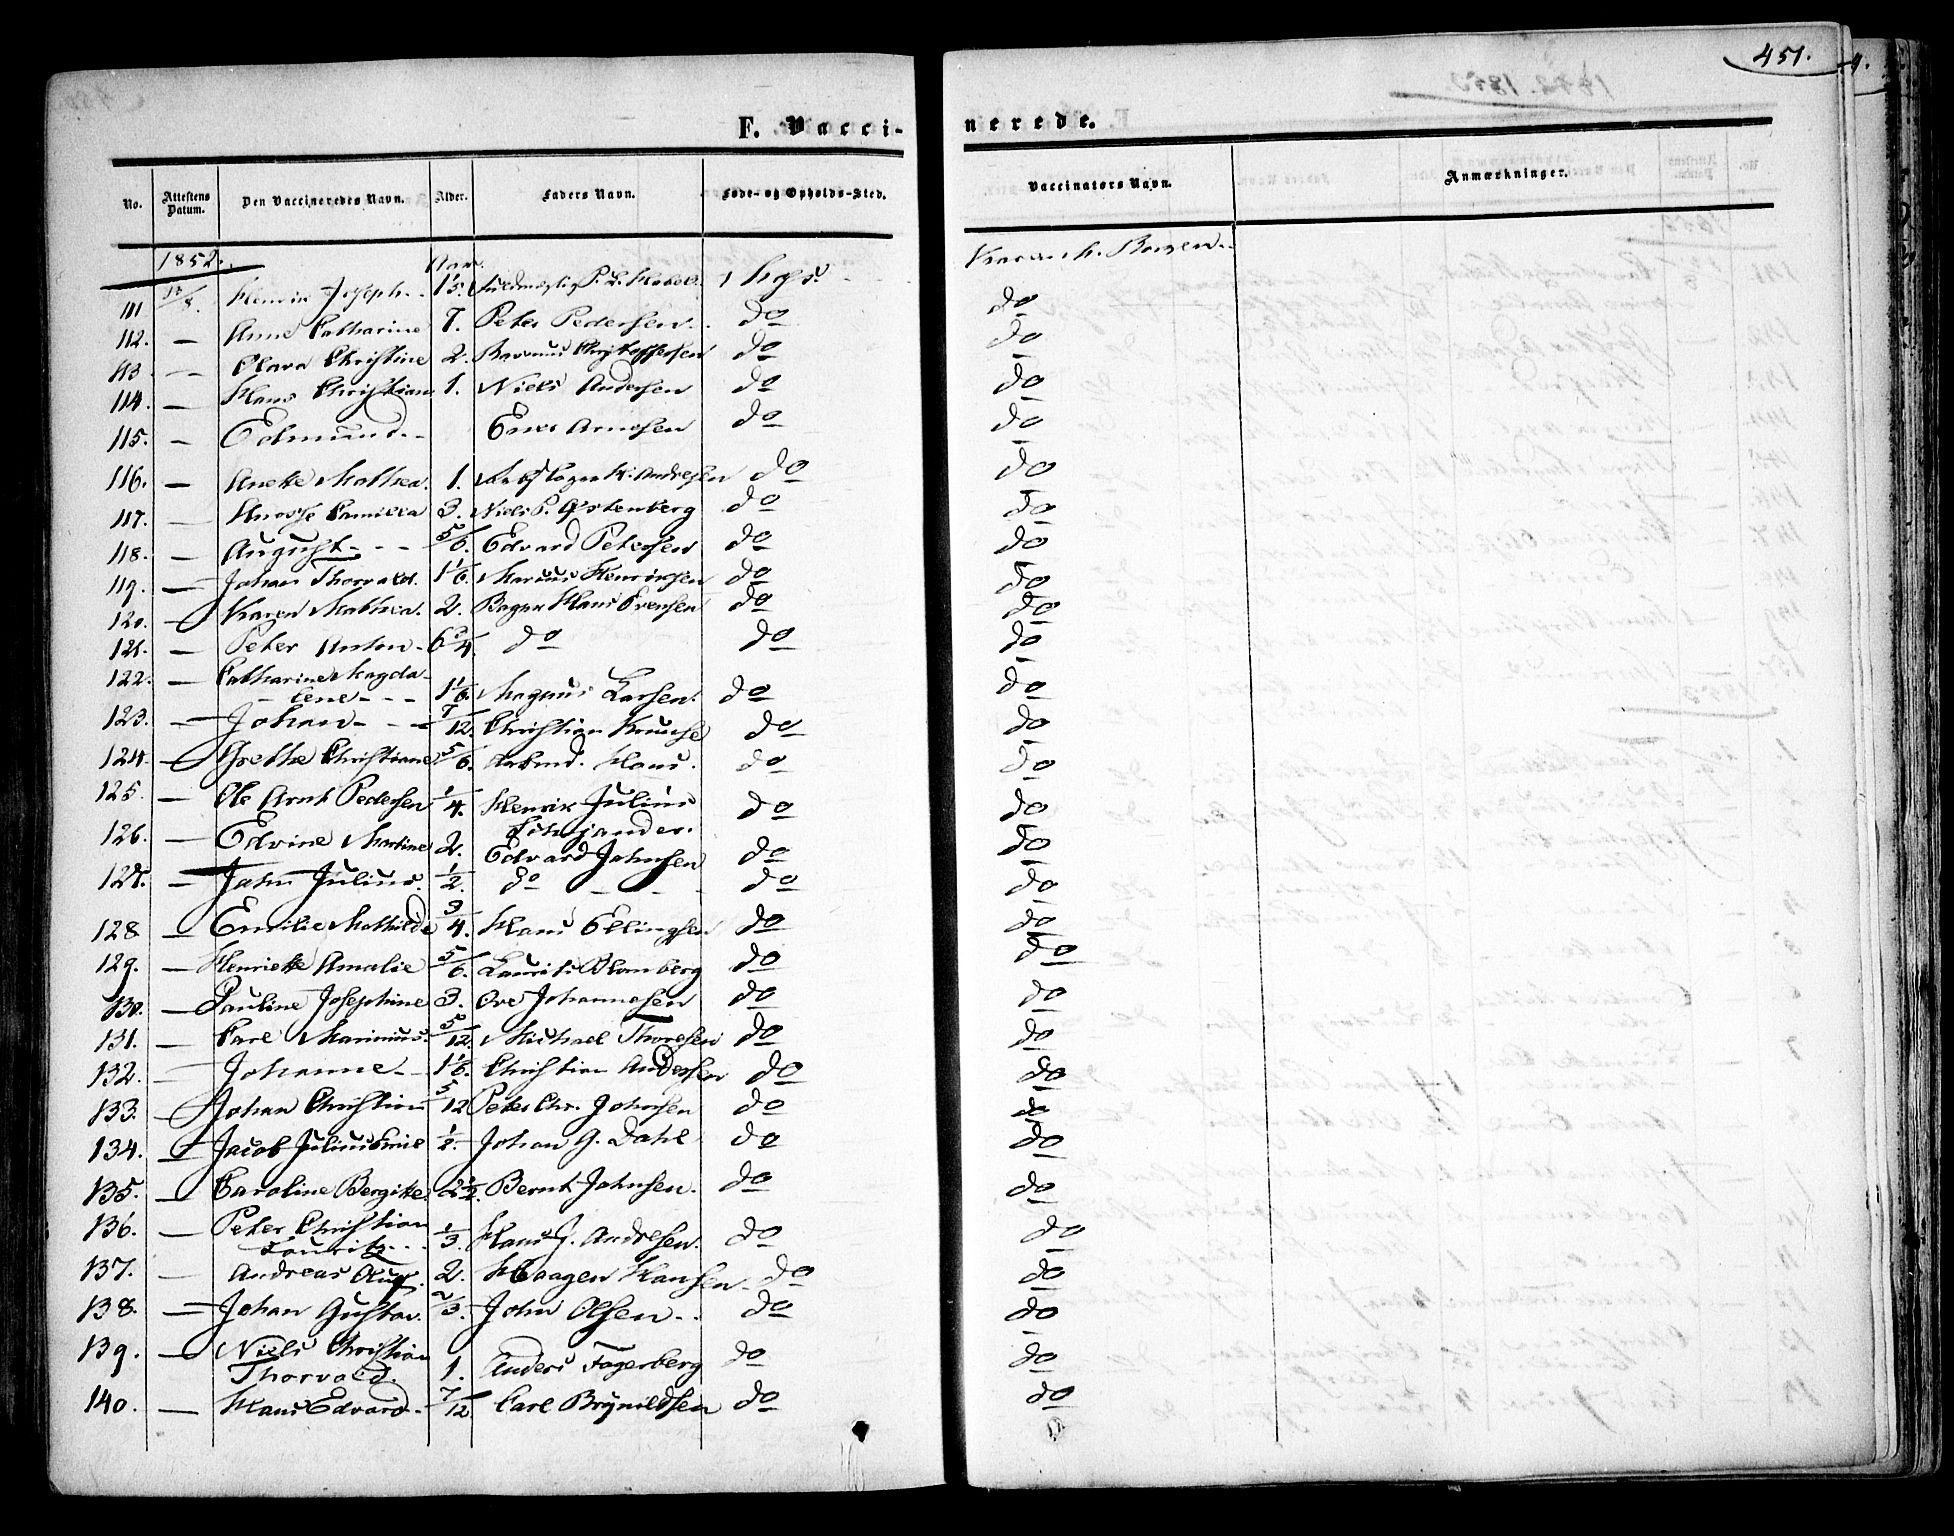 451.
F. Vaccinerede.
No. Attestens Datum. Den Vaccineredes Navn. Alder. Faders Navn. Føde- og Opholds-Sted. Vaccinators Navn. Anmærkninger.
1852. Aar.
111 Henrik Joseph. 1/5. P. L.
112. — Anne Catharine 7. Peter Pedersen. do do
113 — Clara Christine 2. do do
114. — Hans Christian 1. Niels Andersen do do
115. — Edmund. do do
116. — Anette Mathea. 1. Andresen do do
117. — Camilla 3. Niels P. Østenberg do do
118. — August 5/6. Edvard Petersen do do
119. — Johan Thorvald. 1 1/6. Marcus Henriksen do do
120. — Karen Mathea. 2. Bager Hans Evensen do do
121. — Peter Anton do do do
122. — Catharine Magda-
lene 1 1/6. Magnus Larsen. do do
123. — Johan 7/12. Christian do do
124. — Grethe Christiane 5/6. Hans. do do
125. — Ole Arnt Pedersen 1/4. Henrik Julius do do
126. — Edvine Martine 2. Edvard Johnsen do do
127. — John Julius. 1/2. do do do
128 — Emilie Mathilde 3/4. Hans Ellingsen do do
129. — Henriette Amalie 5/6. Laurits Blomberg do do
130. — Pauline Josephine 3. Ove Johannesen do do
131. — Carl Marinius. 5/12. Michael Thoresen do do
132. — Johanne 1 1/6. Christian Andersen do do
133. — Johan Christian 5/12 Peter Chr. Johnsen do do
134. — Jacob Julius Emil 1/2. Johan G. Dahl do do
135. — Caroline Bergitte. 2 1/2. Bernt Johnsen. do do
136. — Peter Christian
Lauritz 1/3. Hans J. Andresen. do do
137. — Andreas Aug. 2. Haagen Hansen do do
138. — Johan Gustav. 2/3. John Olsen do do
139. — Niels Christian
Thorvald. 1. Anders Fagerberg do do
140. — Hans Edvard 7/12 Carl Brynildsen do do